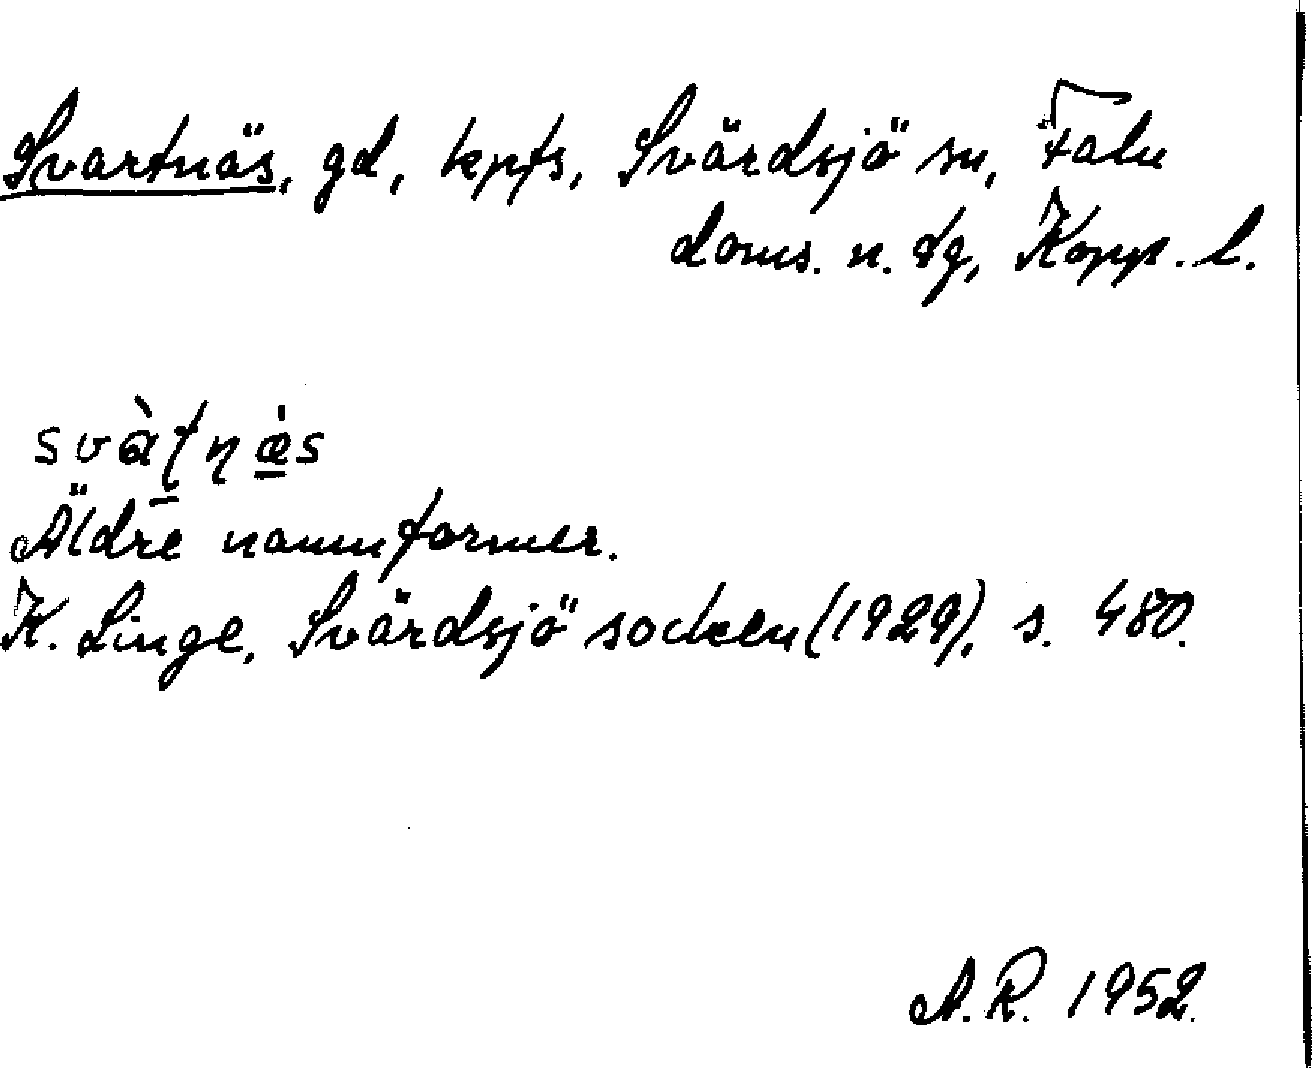 Svartnäs, gd, kpfs, Svärdsjö sn, Falu
doms. n. tg, Kopp. l.
svàʈɳæ̇s
Äldre namnformer.
K. Linge, Svärdsjö socken (1929), s. 480.
A.R. 1952.